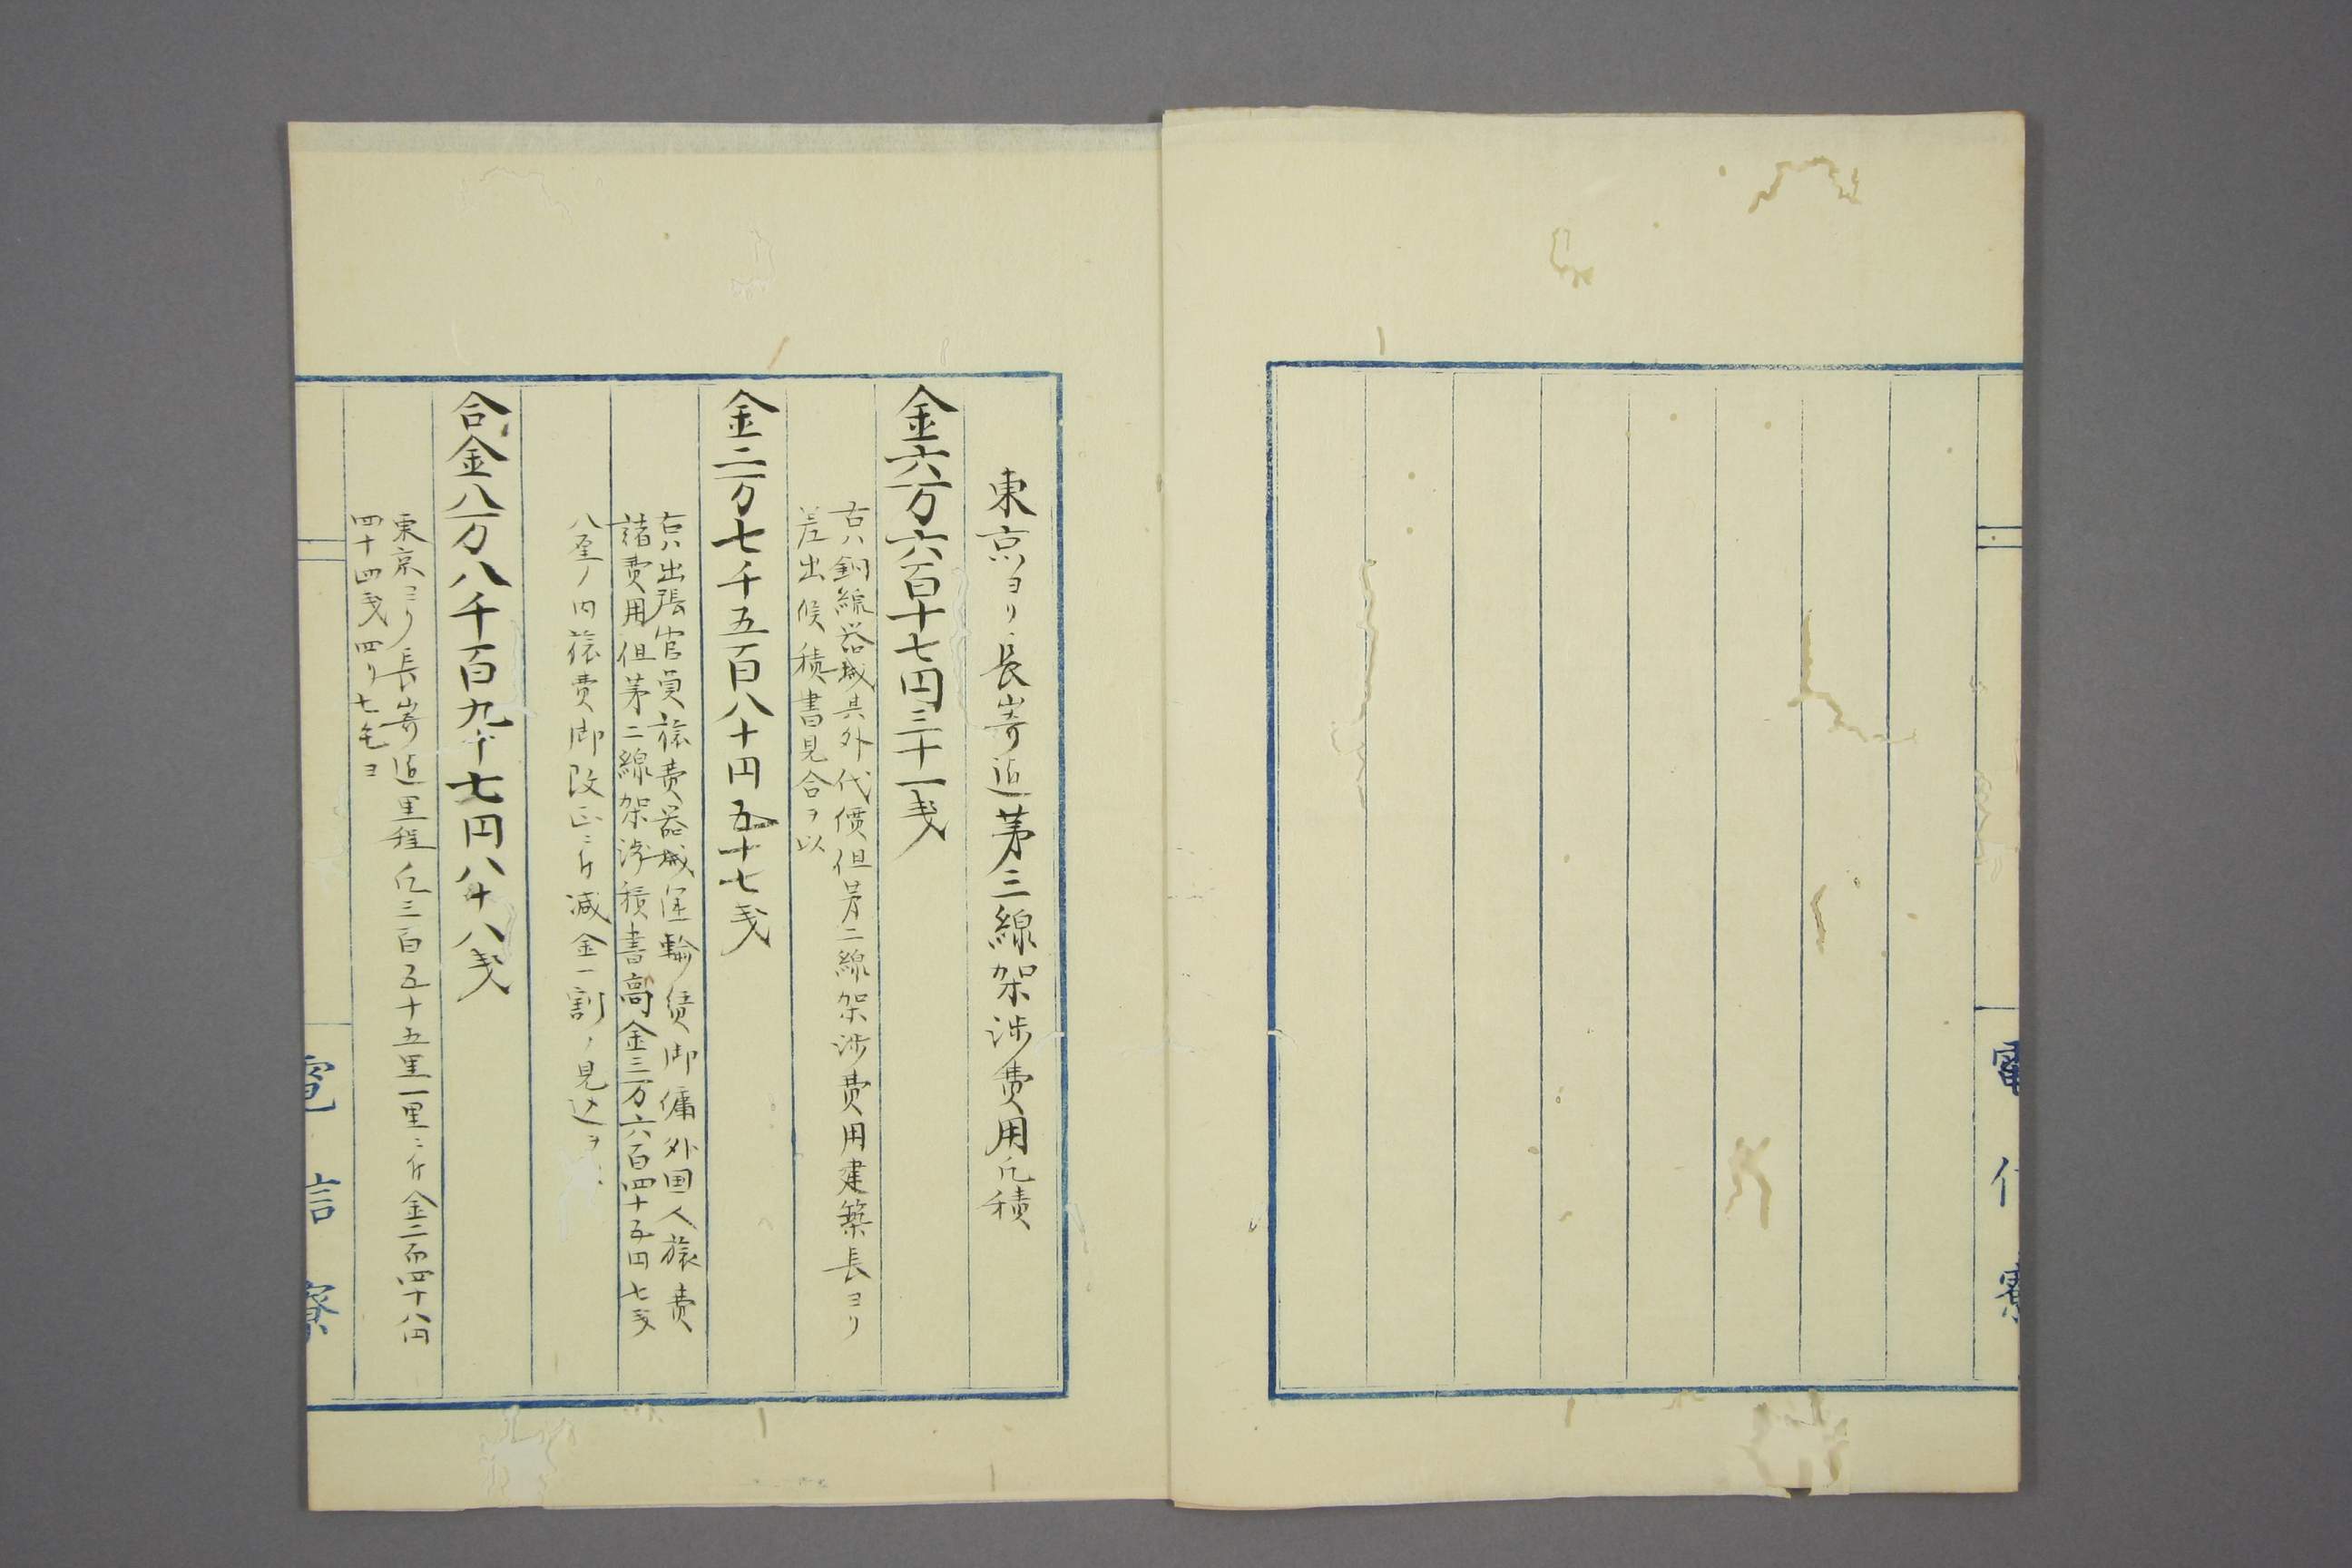 電信寮
東京ヨリ長崎迄第三線架渉費用凡積
金六万六百十七円三十一戋
右ハ銅線器械其外代價但第二線架渉費用建築長ヨリ
差出候積書見合ヲ以
金二万七千五百八十円五十七戋
右ハ出張官員旅費器械運輸賃御傭外国人旅費
諸費用但第二線架渉積書高金三万六百四十五円七戋
八厘ノ内旅費御改正ニ付減金一割ノ見込ヲ
合金八万八千百九十七円八十八戋
東京ヨリ長崎迄里程凡三百五十五里一里ニ付金二百四十八円
四十四戋四リ七毛ヨ
電信寮